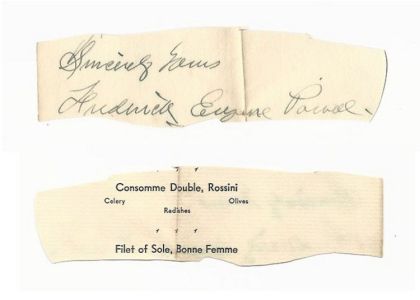 Sincerely Yours
Frederick Eugene Powell
Consomme Double, Rossini
Celery Olives
Radishes
Filet of Sole, Bonne Femme